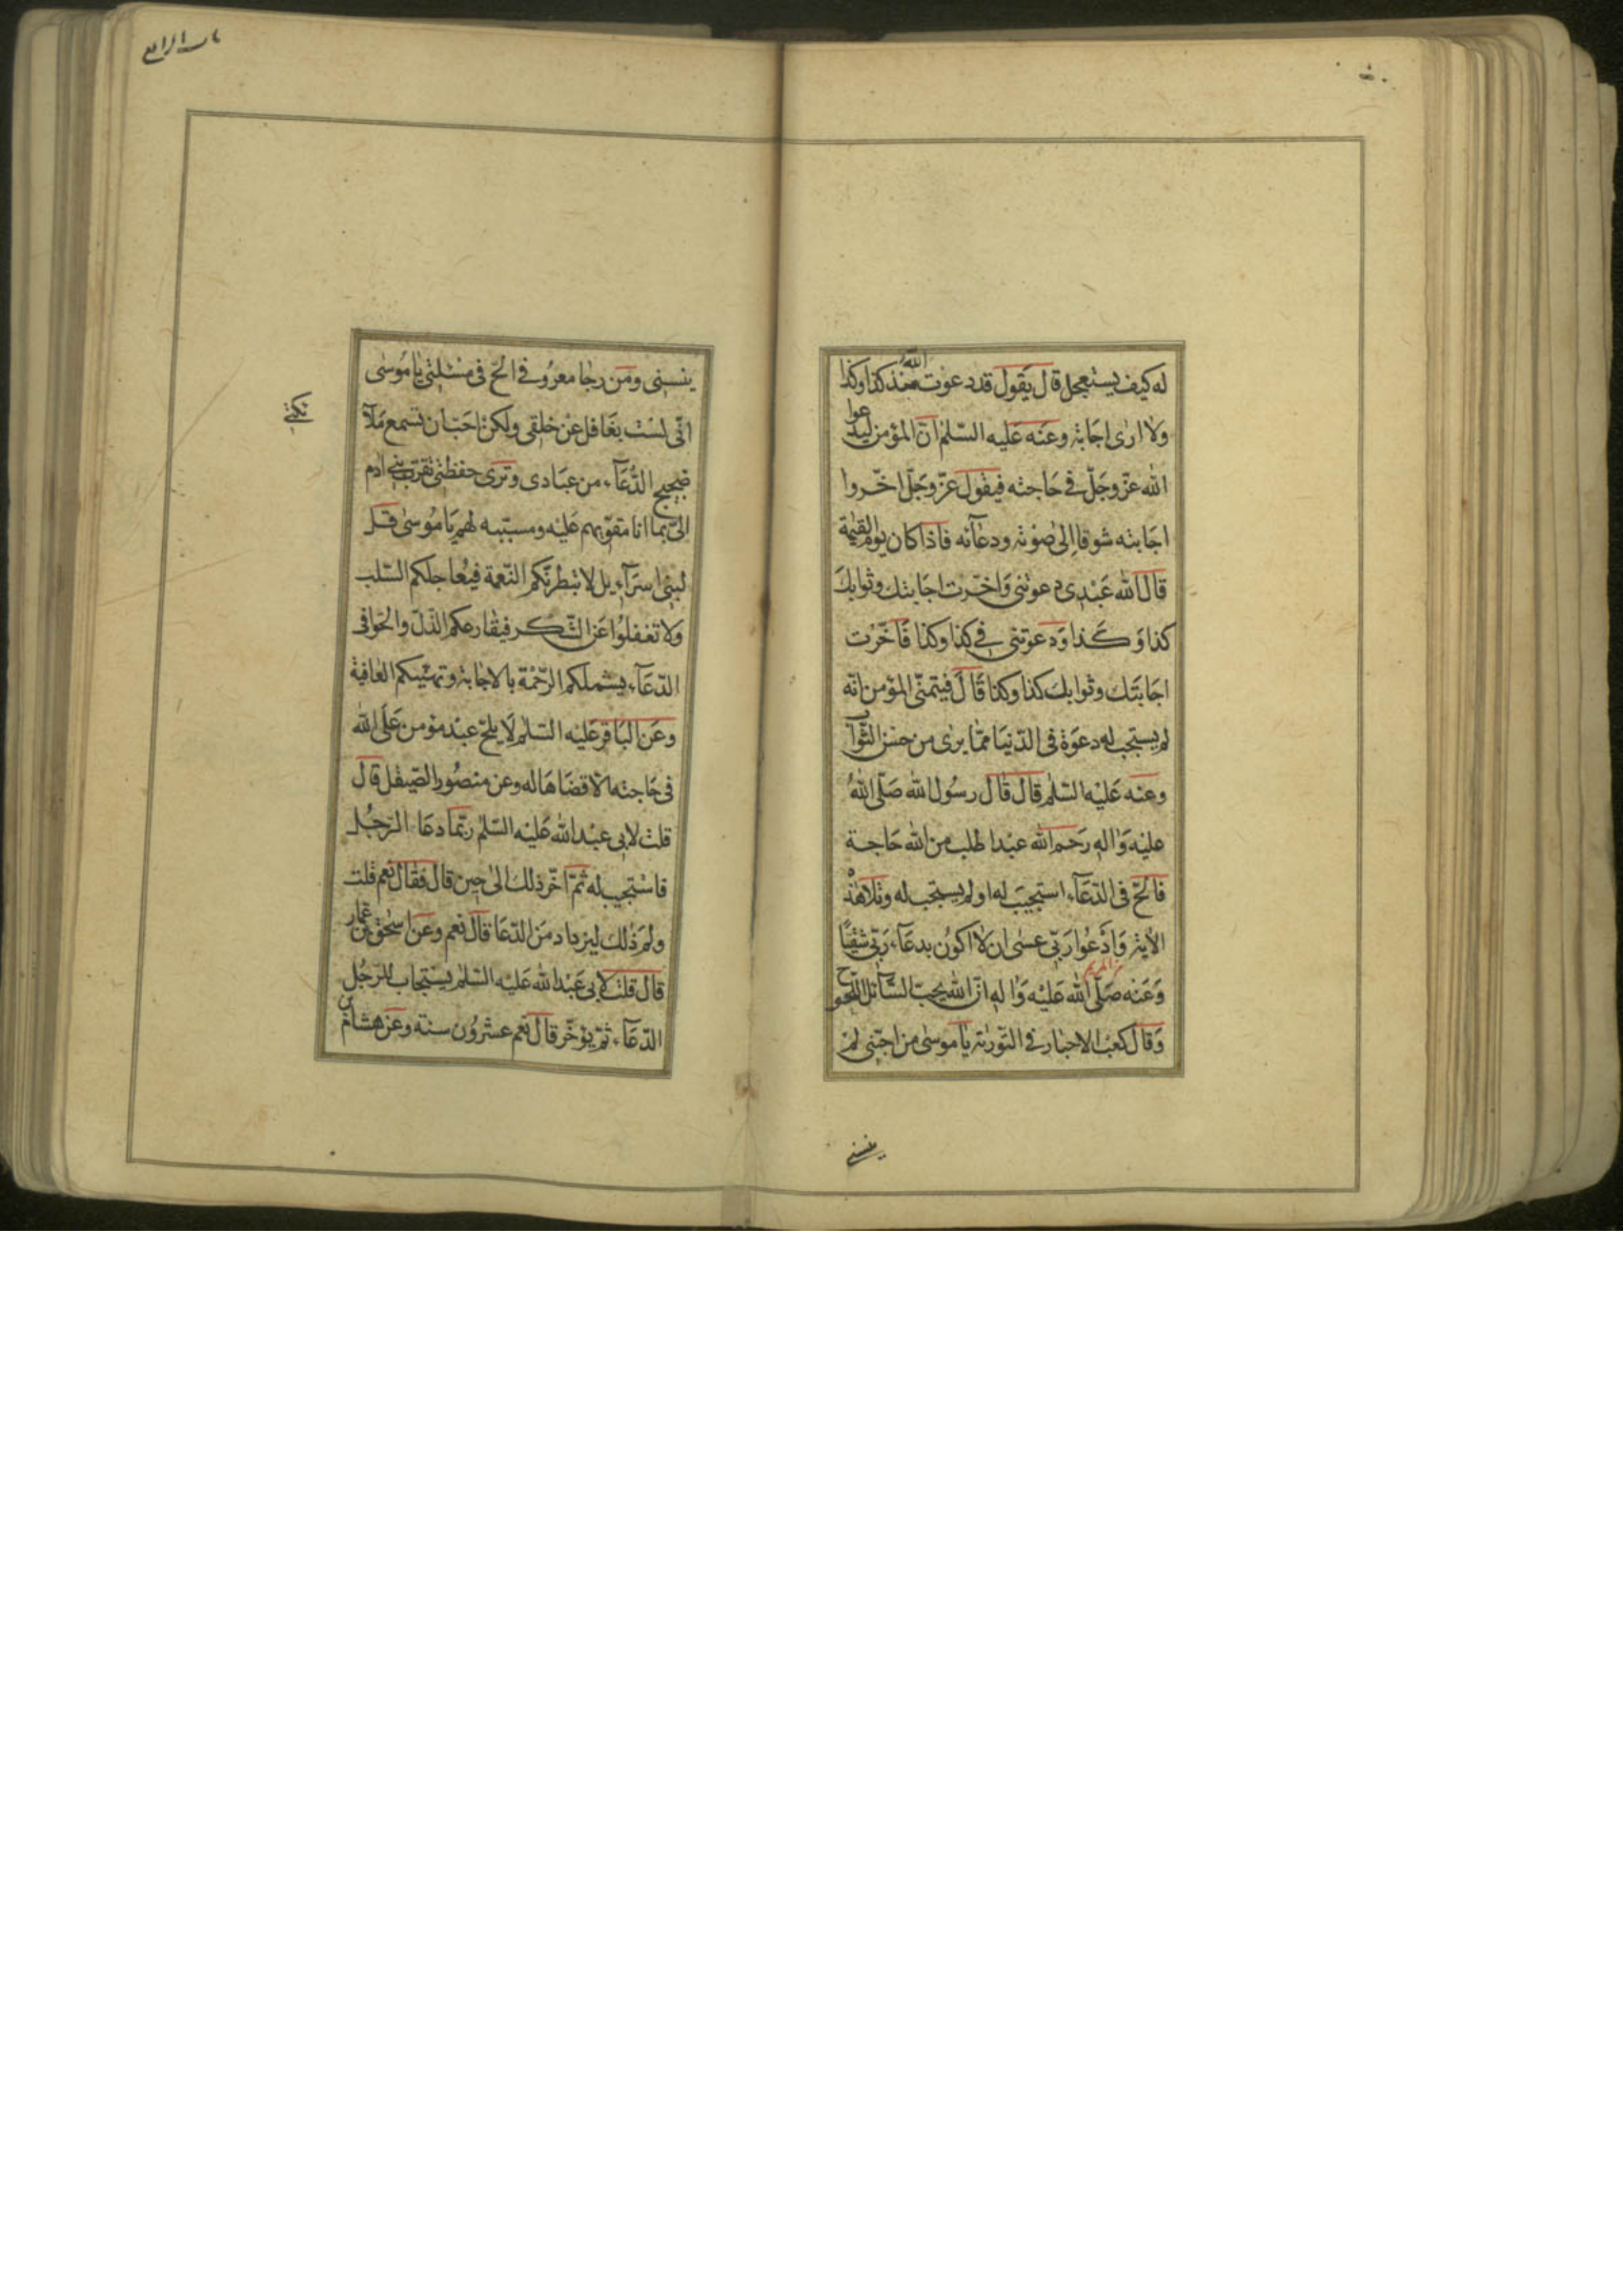 له كيف يستعجل قال يقول قد دعوت الله منذ كذا وكذا
ولا ارى اجابة وعنه عليه السّلم انّ المؤمن ليدعوا
الله عزّ وجلّ في حاجته فيقول عزّ وجلّ اخّروا
اجابته شوقا الى صوته ودعآئه فاذا كان يوم القيمة
قال الله عبدى دعوتنى واخّرت اجابتك وثوابك
كذا وكذا ودعوتنى في كذا وكذا فاخّرت
اجابتك وثوابك كذا وكذا قال فيتمنّى المؤمن انّه
لم يستجب له دعوة فى الدّنيا ممّا يرى من حسن الثّواب
وعنه عليه السّلم قال قال رسول الله صلّى الله
عليه واله رحم الله عبدا طلب من الله حاجة
فالحّ فى الدّعآء استجيب له او لم يستجب له وتلا هذه
الاية وادعوا ربّى عسى ان لا اكون بدعآء ربّى شقيّا
وعنه صلّى الله عليه واله انّ الله يحبّ السّآئل اللّحوح
وقال كعب الاحبار فى التّورية يا موسى من احبّنى لم
ينسنى
باب الرابع
ينسنى ومن رجا معروفى الحّ فى مسئلتى يا موسى
انّى لست بغافل عن خلقى ولكن احبّ ان تسمع ملآ
ضجيج الدّعآء من عبادى وترى حفظتى تقرّب بنى ادم
الىّ بما انا مقوّيهم عليه ومسبّبه لهم يا موسى قل
لبنى اسرآءيل لا تبطرنّكم النّعمة فيعاجلكم السّلب
ولا تغفلوا عن الشّكر فيقارعكم الذّلّ والحّوا فى
الدّعآء يشملكم الرّحمة بالاجابة وتهنّيكم العافية
وعن الباقر عليه السّلم لا يلحّ عبد مؤمن على الله
فى حاجته الّا قضاها له وعن منصور الصّيقل قال
قلت لابى عبد الله عليه السّلم ربّما دعا الرّجل
فاستجيب له ثمّ اخّر ذلك الى حين قال فقال نعم قلت
ولم ذلك ليزداد من الدّعا قال نعم وعن اسحق بن عمار
قال قلت لابى عبد الله عليه السّلم يستجاب للرّجل
الدّعآء ثمّ يؤخّر قال نعم عشرون سنة وعن هشام بن